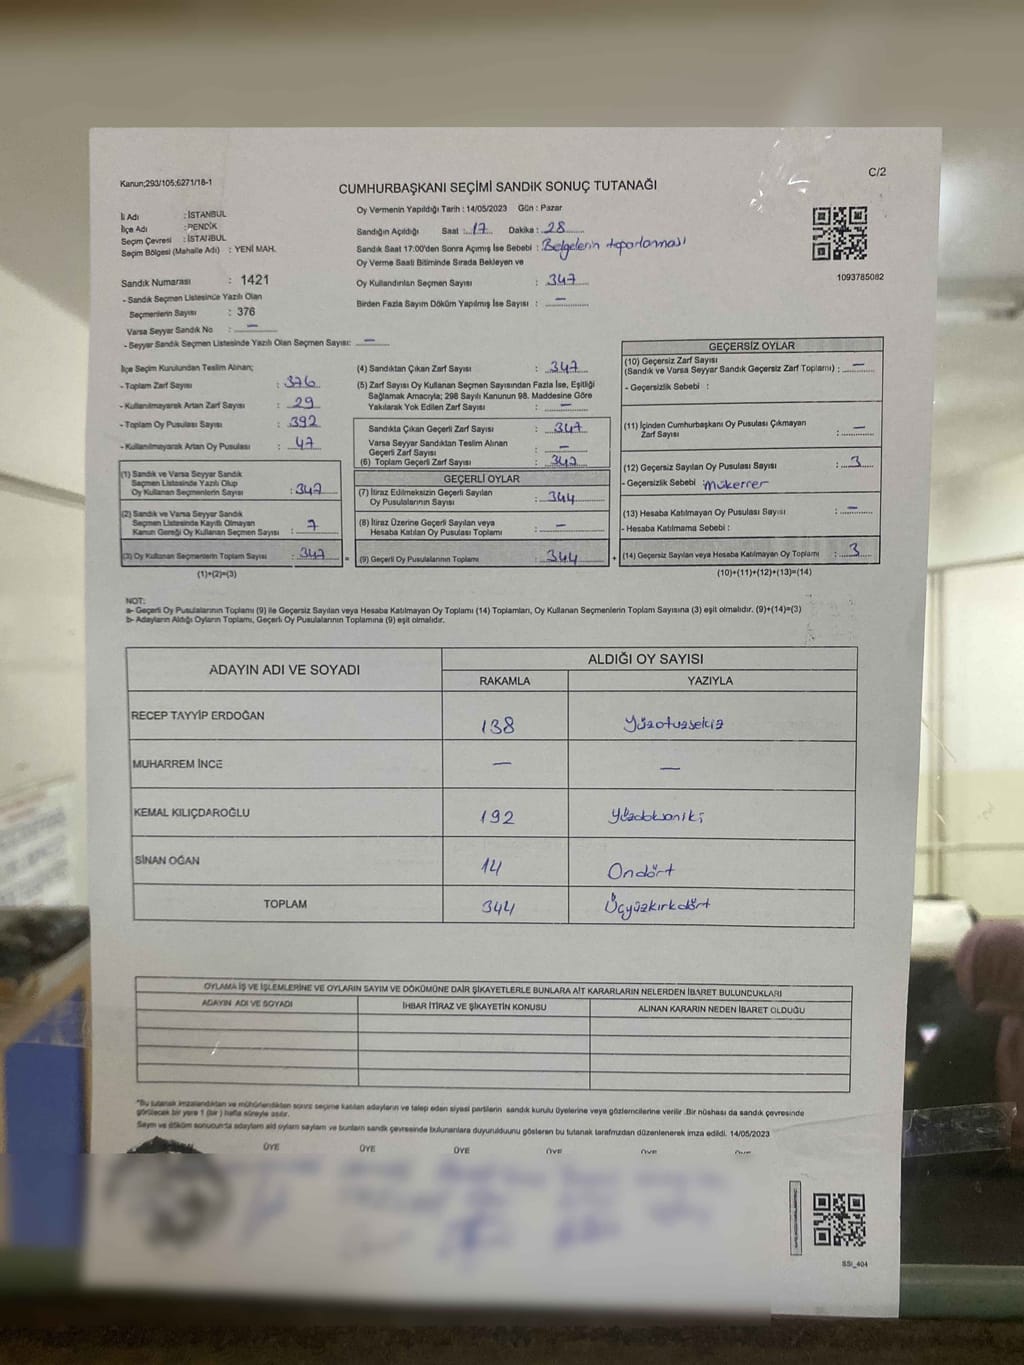 Kanun;293/105;6271/18-1
C/2
CUMHURBAŞKANI SEÇİMİ SANDIK SONUÇ TUTANAĞI
İl Adı : İSTANBUL
İlçe Adı : PENDİK
Seçim Çevresi : İSTANBUL
Seçim Bölgesi (Mahalle Adı) : YENİ MAH.
Oy Vermenin Yapıldığı Tarih : 14/05/2023 Gün : Pazar
Sandığın Açıldığı Saat : 17 Dakika : 28
Sandık Saat 17:00'den Sonra Açımış İse Sebebi : Belgelerin toparlanması
Oy Verme Saati Bitiminde Sırada Bekleyen ve
Oy Kullandırılan Seçmen Sayısı : 347
Birden Fazla Sayım Döküm Yapılmış İse Sayısı : —
1093785082
Sandık Numarası : 1421
- Sandık Seçmen Listesinde Yazılı Olan
Seçmenlerin Sayısı : 376
Varsa Seyyar Sandık No : —
- Seyyar Sandık Seçmen Listesinde Yazılı Olan Seçmen Sayısı: —
İlçe Seçim Kurulundan Teslim Alınan;
- Toplam Zarf Sayısı : 376
- Kullanılmayarak Artan Zarf Sayısı : 29
- Toplam Oy Pusulası Sayısı : 392
- Kullanılmayarak Artan Oy Pusulası : 47
(1) Sandık ve Varsa Seyyar Sandık
Seçmen Listesinde Yazılı Olup
Oy Kullanan Seçmenlerin Sayısı : 347
(2) Sandık ve Varsa Seyyar Sandık
Seçmen Listesinde Kayıtlı Olmayan
Kanun Gereği Oy Kullanan Seçmen Sayısı :
(3) Oy Kullanan Seçmenlerin Toplam Sayısı : 347 =
(1)+(2)=(3)
(4) Sandıktan Çıkan Zarf Sayısı : 347
(5) Zarf Sayısı Oy Kullanan Seçmen Sayısından Fazla İse, Eşitliği
Sağlamak Amacıyla; 298 Sayılı Kanunun 98. Maddesine Göre
Yakılarak Yok Edilen Zarf Sayısı : —
Sandıkta Çıkan Geçerli Zarf Sayısı : 347
Varsa Seyyar Sandıktan Teslim Alınan
Geçerli Zarf Sayısı : —
(6) Toplam Geçerli Zarf Sayısı : 347
GEÇERLİ OYLAR
(7) İtiraz Edilmeksizin Geçerli Sayılan
Oy Pusulalarının Sayısı : 344
(8) İtiraz Üzerine Geçerli Sayılan veya
Hesaba Katılan Oy Pusulası Toplamı : —
(9) Geçerli Oy Pusulalarının Toplamı : 344 +
GEÇERSİZ OYLAR
(10) Geçersiz Zarf Sayısı
(Sandık ve Varsa Seyyar Sandık Geçersiz Zarf Toplamı) : —
- Geçersizlik Sebebi :
(11) İçinden Cumhurbaşkanı Oy Pusulası Çıkmayan
Zarf Sayısı : —
(12) Geçersiz Sayılan Oy Pusulası Sayısı : 3
- Geçersizlik Sebebi : mükerrer
(13) Hesaba Katılmayan Oy Pusulası Sayısı : —
- Hesaba Katılmama Sebebi :
(14) Geçersiz Sayılan veya Hesaba Katılmayan Oy Toplamı : 3
(10)+(11)+(12)+(13)=(14)
NOT:
a- Geçerli Oy Pusulalarının Toplamı (9) ile Geçersiz Sayılan veya Hesaba Katılmayan Oy Toplamı (14) Toplamları, Oy Kullanan Seçmenlerin Toplam Sayısına (3) eşit olmalıdır. (9)+(14)=(3)
b- Adayların Aldığı Oyların Toplamı, Geçerli Oy Pusulalarının Toplamına (9) eşit olmalıdır.
ADAYIN ADI VE SOYADI
ALDIĞI OY SAYISI
RAKAMLA YAZIYLA
RECEP TAYYİP ERDOĞAN 138 Yüzotuzsekiz
MUHARREM İNCE — —
KEMAL KILIÇDAROĞLU 192 Yüzdoksaniki
SİNAN OĞAN 14 Ondört
TOPLAM 344 Üçyüzkırkdört
OYLAMA İŞ VE İŞLEMLERİNE VE OYLARIN SAYIM VE DÖKÜMÜNE DAİR ŞİKAYETLERLE BUNLARA AİT KARARLARIN NELERDEN İBARET BULUNDUKLARI
ADAYIN ADI VE SOYADI İHBAR İTİRAZ VE ŞİKAYETİN KONUSU ALINAN KARARIN NEDEN İBARET OLDUĞU
*Bu tutanak imzalandıktan ve mühürlendikten sonra seçime katılan adayların ve talep eden siyasi partilerin sandık kurulu üyelerine veya gözlemcilerine verilir .Bir nüshası da sandık çevresinde
görülecek bir yere 1 (bir ) hafta süreyle asılır.
Sayım ve döküm sonucunda adayların aldığı oyların sayılarını ve bunların sandık çevresinde bulunanlara duyurulduğunu gösteren bu tutanak tarafımızdan düzenlenerek imza edildi. 14/05/2023
ÜYE ÜYE ÜYE ÜYE ÜYE
SSI_404